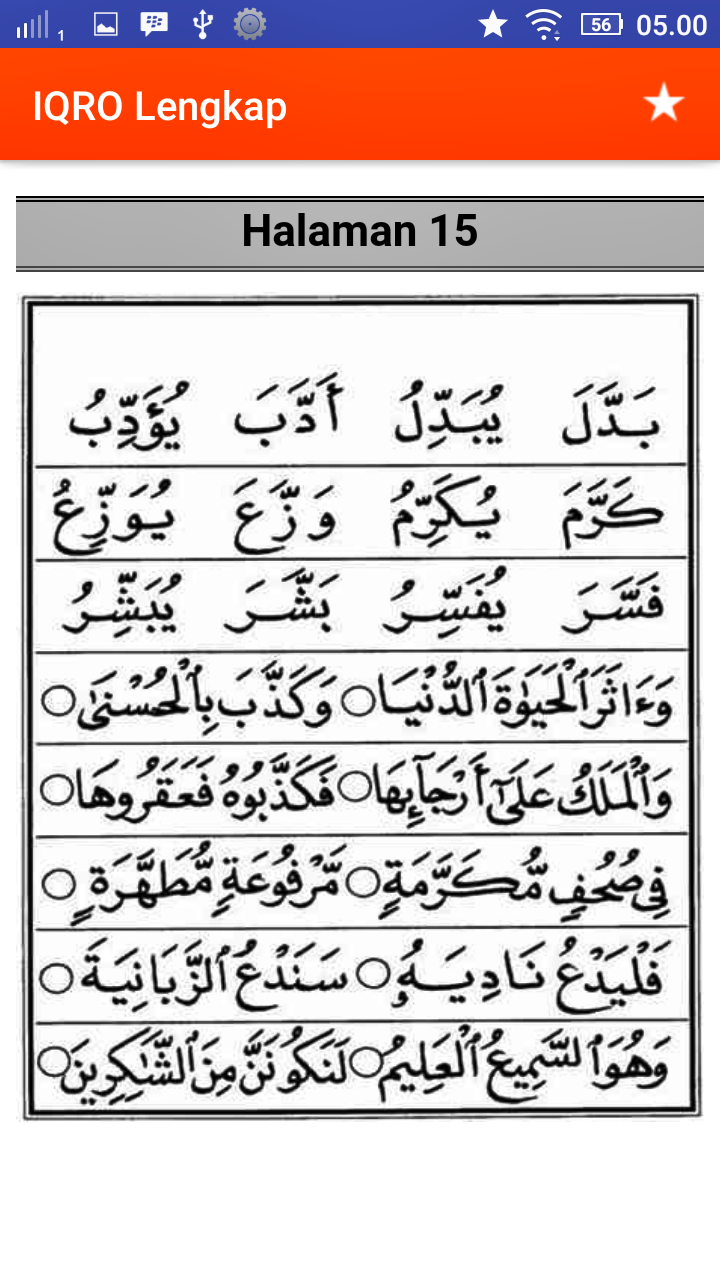 1 56 05.00
IQRO Lengkap
Halaman 15
بَدَّلَ يُبَدِّلُ أَدَّبَ يُؤَدِّبُ
كَرَّمَ يُكَرِّمُ وَزَّعَ يُوَزِّعُ
فَسَّرَ يُفَسِّرُ بَشَّرَ يُبَشِّرُ
وَءَاثَرَ ٱلْحَيَوٰةَ ٱلدُّنْيَا ○ وَكَذَّبَ بِٱلْحُسْنَىٰ ○
وَٱلْمَلَكُ عَلَىٰٓ أَرْجَآئِهَا ○ فَكَذَّبُوهُ فَعَقَرُوهَا ○
فِي صُحُفٍ مُّكَرَّمَةٍ ○ مَّرْفُوعَةٍ مُّطَهَّرَةٍ ○
فَلْيَدْعُ نَادِيَهُۥ ○ سَنَدْعُ ٱلزَّبَانِيَةَ ○
وَهُوَ ٱلسَّمِيعُ ٱلْعَلِيمُ ○ لَنَكُونَنَّ مِنَ ٱلشَّٰكِرِينَ ○